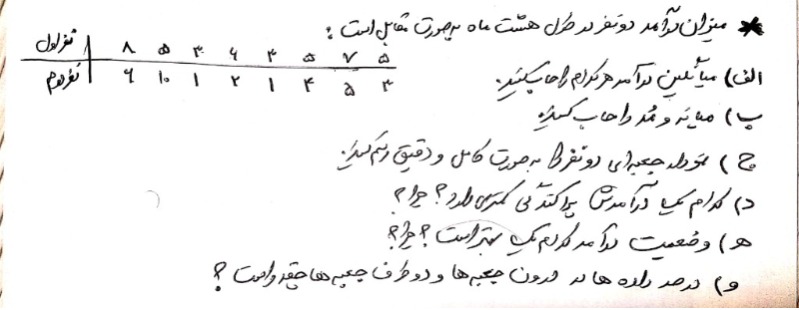 * میزان درآمد دو نفر در طول هشت ماه به صورت مقابل است:
نفر اول | ۸ ۵ ۳ ۶ ۳ ۵ ۷ ۵
نفر دوم | ۶ ۱۰ ۱ ۲ ۱ ۴ ۵ ۳
الف) میانگین درآمد هر کدام را حساب کنید.
ب) میانه و مُد را حساب کنید.
ج) نمودار جعبه‌ای دو نفر را به صورت کامل و دقیق رسم کنید.
د) کدام یک درآمدش پراکندگی کمتری دارد؟ چرا؟
ه) وضعیت درآمد کدام یک بهتر است؟ چرا؟
و) درصد داده ها در درون جعبه ها و دو طرف جعبه ها چقدر است؟